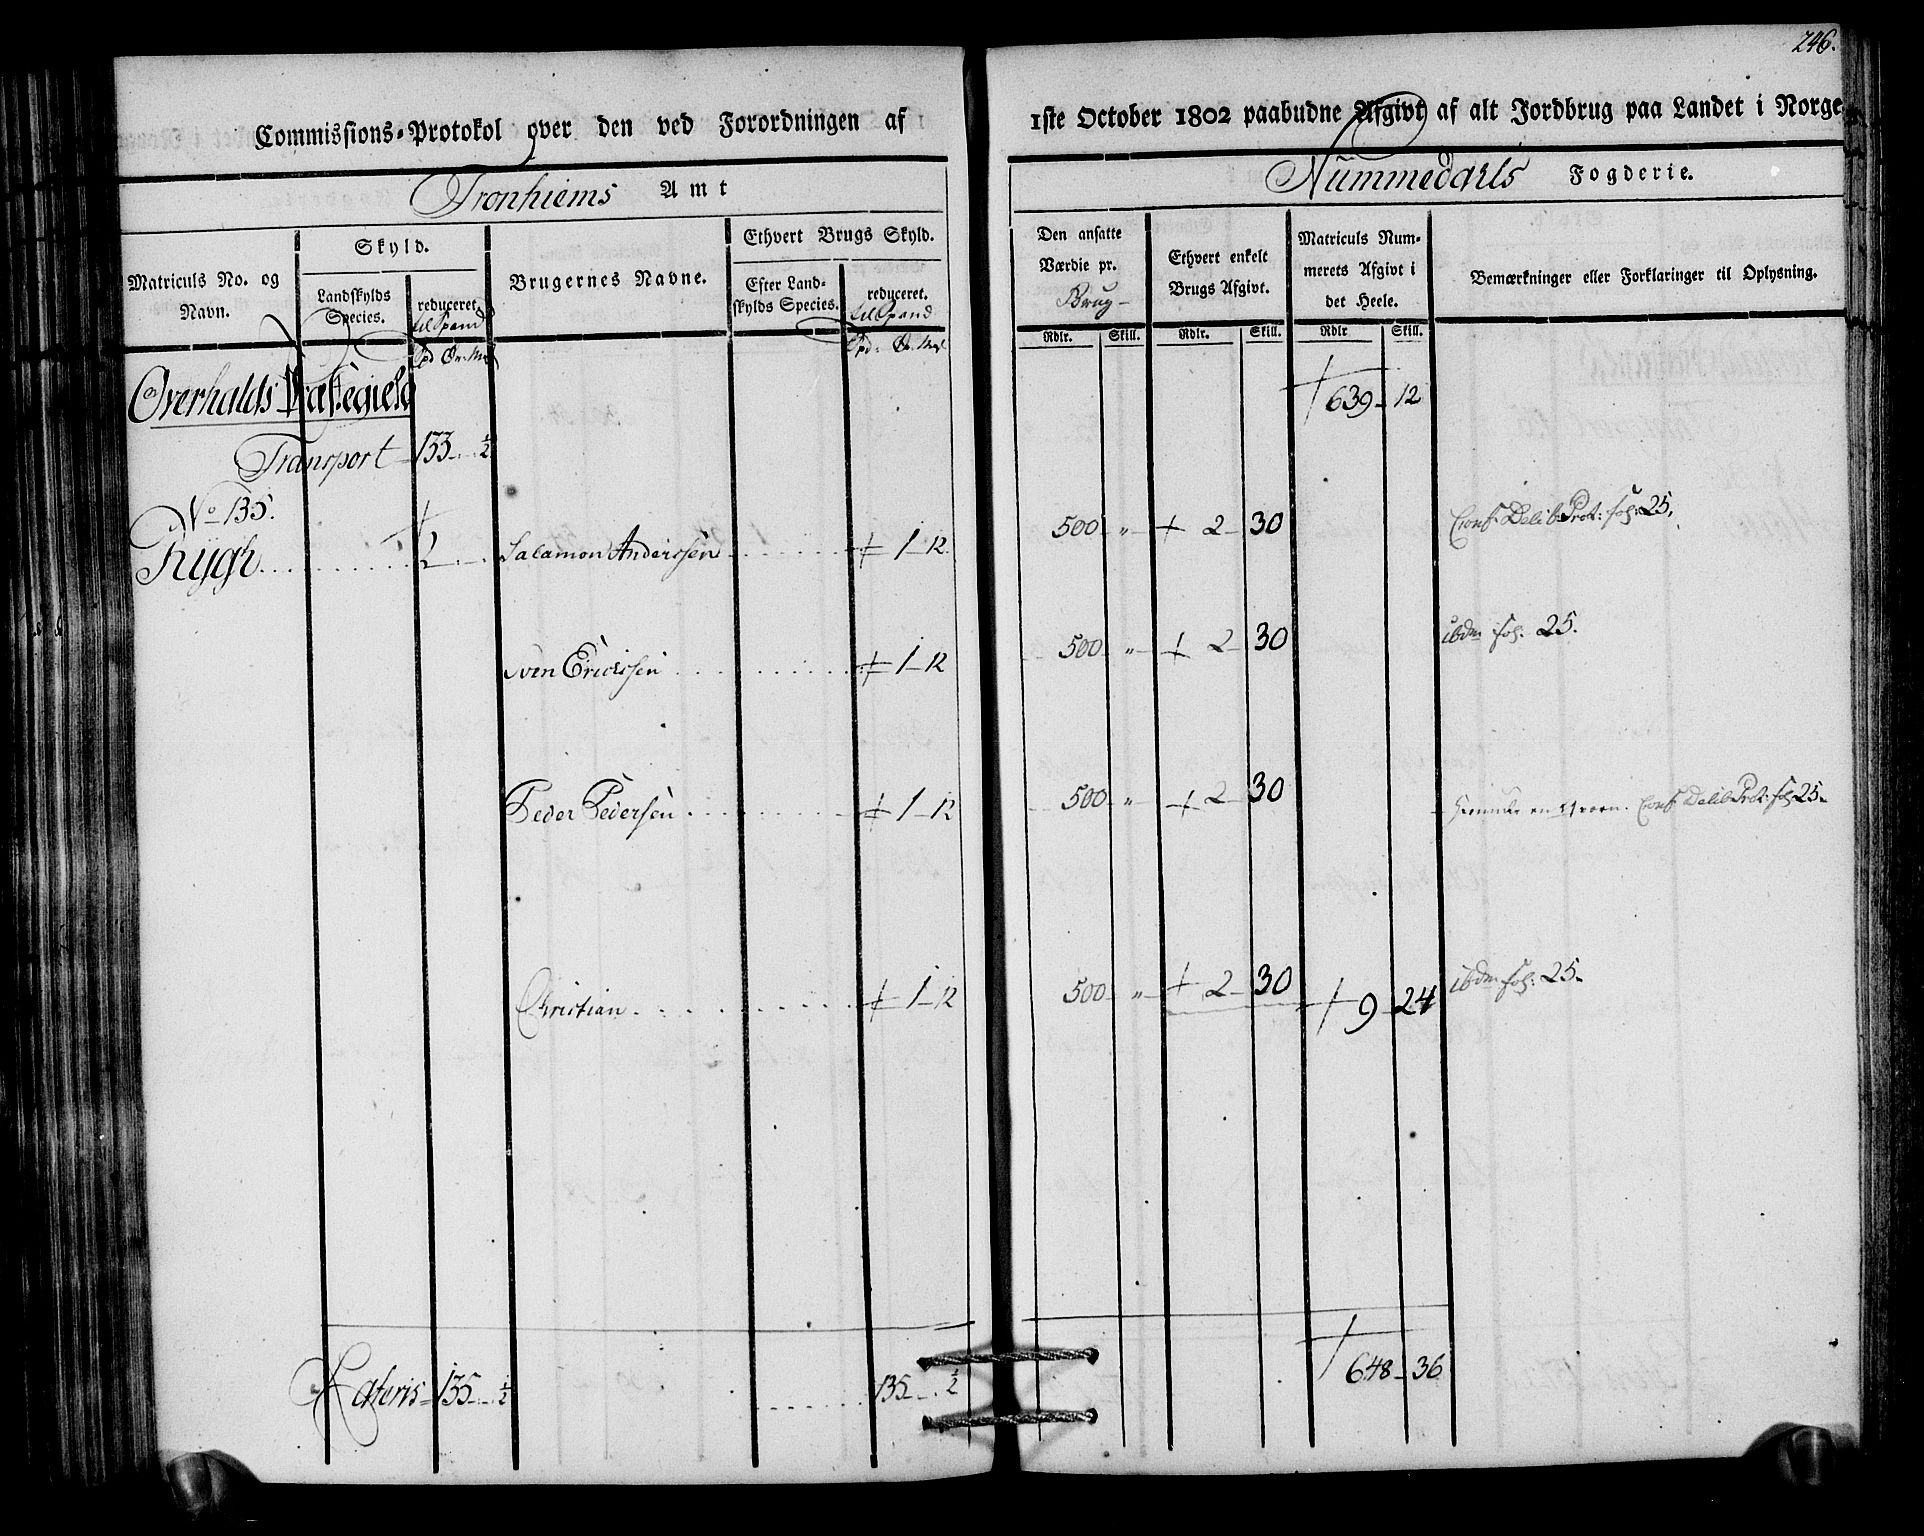 246.
Commissions-Protokol over den ved Forordningen af
1ste October 1802 paabudne Afgivt af alt Jordbrug paa Landet i Norge.
Tronhiems Amt
Nummedahls Fogderie.
Matriculs No. og Navn.
Skyld.
Landskylds Species.
reduceret.
til Spand
Spd Ør. Ml
Brugernes Navne.
Ethvert Brugs Skyld.
Efter Landskylds Species.
reduceret.
til Spand
Spd: Ør. Ml
Den ansatte Værdie pr.
Brug
Rdlr. Skill.
Ethvert enkelt Brugs Afgivt.
Rdlr. Skill.
Matriculs Nummerets Afgivt i det Heele.
Rdlr Skill.
Bemærkninger eller Forklaringer til Oplysning.
Overhalds Præstegield 639 - 12
Transport 133 - ½
No 135.
Rygh 2 Salamon Anderssen 1 - 12 500 " 2 - 30 Conf. Delib. Prot: fol: 25.
Sven Ericssen 1 - 12 500 " 2 - 30 ibdm fol. 25.
Peder Pedersen 1 - 12 500 " 2 - 30 Conf Delib Prot: fol 25.
Christian 1 - 12 500 " 2 - 30 9 - 24 ibdm fol: 25.
Lateris 135 - ½ 135 - ½ 648 - 36